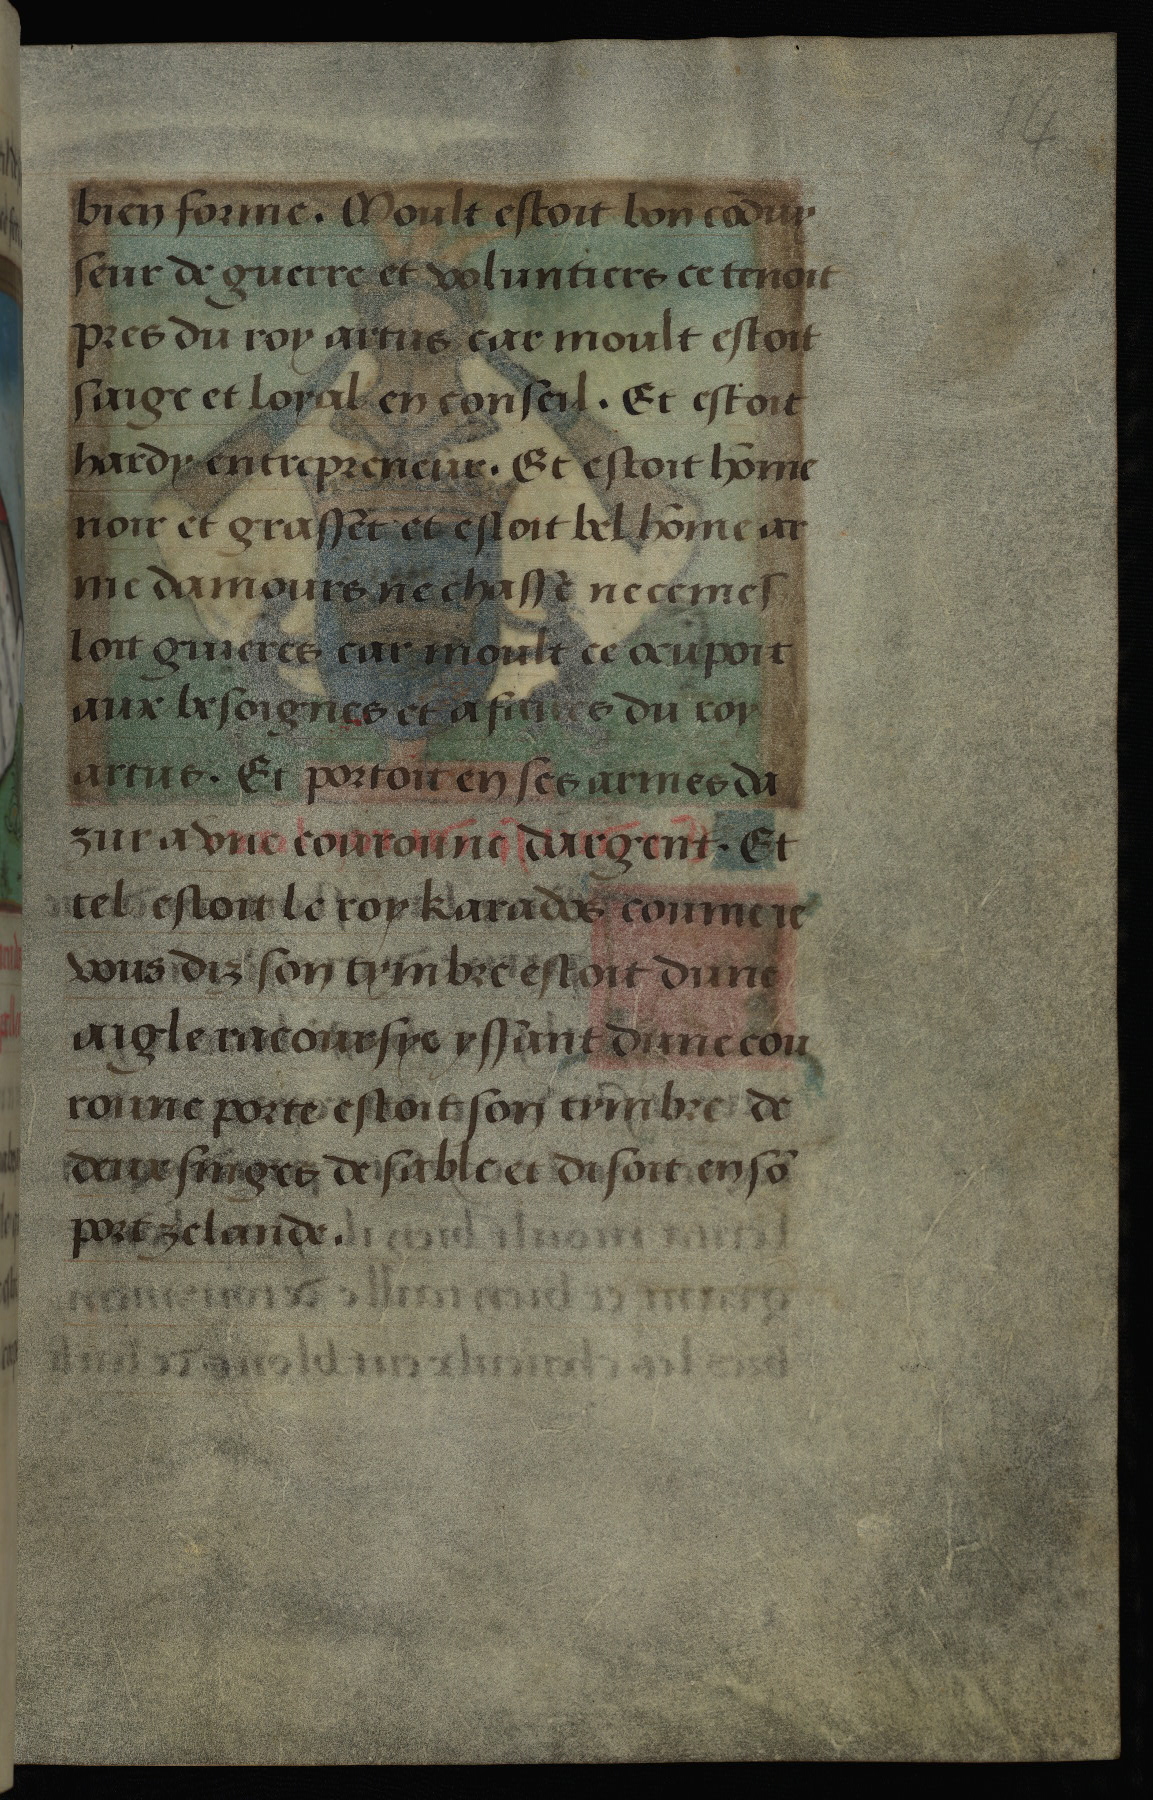 14
bien forme. Moult estoit bon cōduy
seur de guerre et voluntiers ce tenoit
pres du roy artus car moult estoit
saige et loyal en conseil. Et estoit
hardy entrepreneur. Et estoit hōme
noir et grasset et estoit bel hōme ar
me damours ne chasse ne cemes
loit guieres car moult ce ocupoit
aux besoignes et afaires du roy
artus. Et portoit en ses armes da
zur a vne couronne dargent. Et
tel estoit le roy karados comme ie
vous diz son tymbre estoit dune
aigle racoursye yssant dune cou
ronne porte estoit son tymbre de
deux singes de sable et disoit en sō
port zelande.